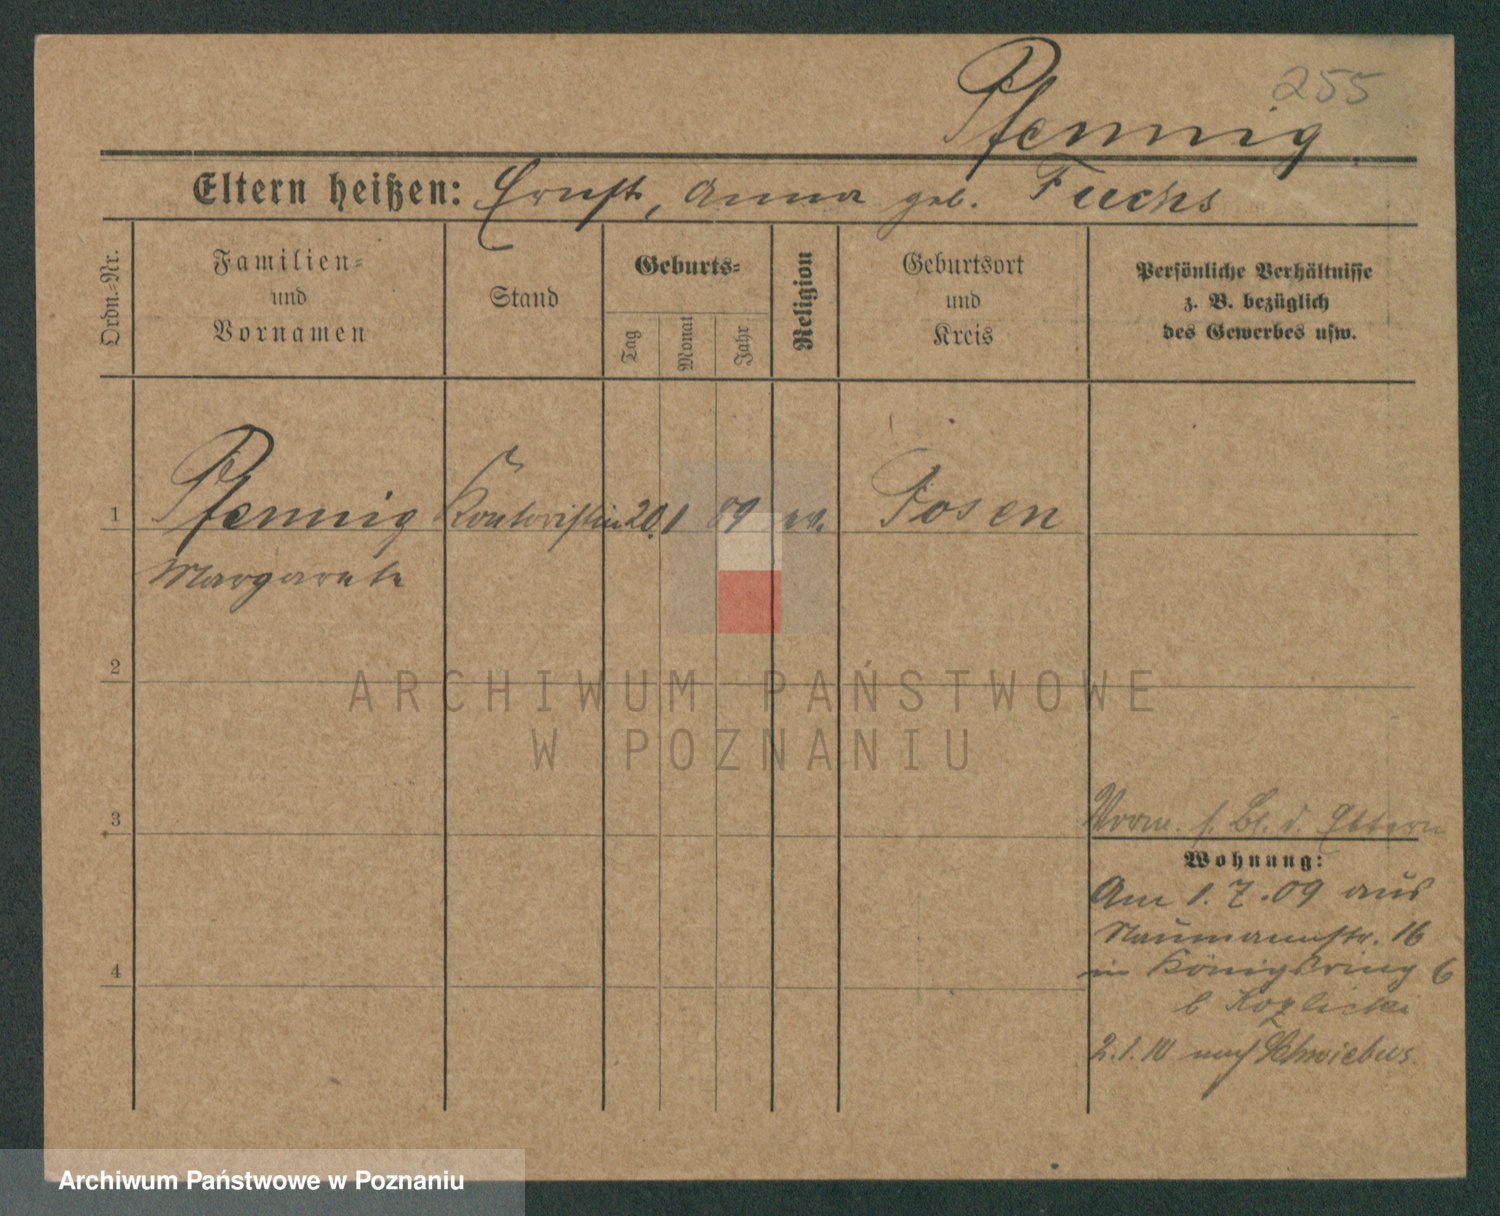 255
Pfennig
Eltern heißen: Ernst, Anna geb. Fuchs
Ordn.-Nr.
Familien- und Vornamen
Stand
Geburts-
Tag
Monat
Jahr
Religion
Geburtsort und Kreis
Persönliche Verhältnisse
z. B. bezüglich
des Gewerbes usw.
1 Pfennig Kontoristin 20. 1 89 ev. Posen
Margarete
2
ARCHIWUM PAŃSTWOWE
W POZNANIU
3
Vorm. s. Bl. d. Eltern
Wohnung:
Am 1.7.09 aus
Naumannstr. 16
in Königsring 6
4
b Kozlicki
2.1.10 nach Schwiebus.
Archiwum Państwowe w Poznaniu